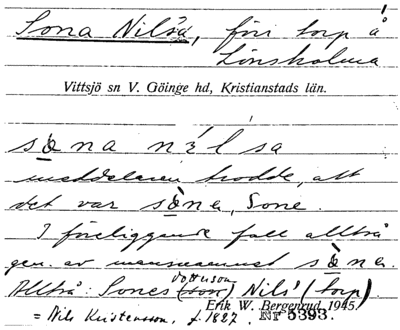 Sona Nilsa, förr torp å
Lönsholma
Vittsjö sn V. Göinge hd, Kristianstads län.
sɷ̀na nìlsa
meddelaren trodde, att
det var sɷ̀ne, Sone.
I föreliggande fall alltså
gen. av mansnamnet sɷ̀na.
Alltså: Sones (son) Nils' (torp)
dotterson
Erik W. Bergenrud 1945.
= Nils Kristensson, f. 1827. Nr 5393.